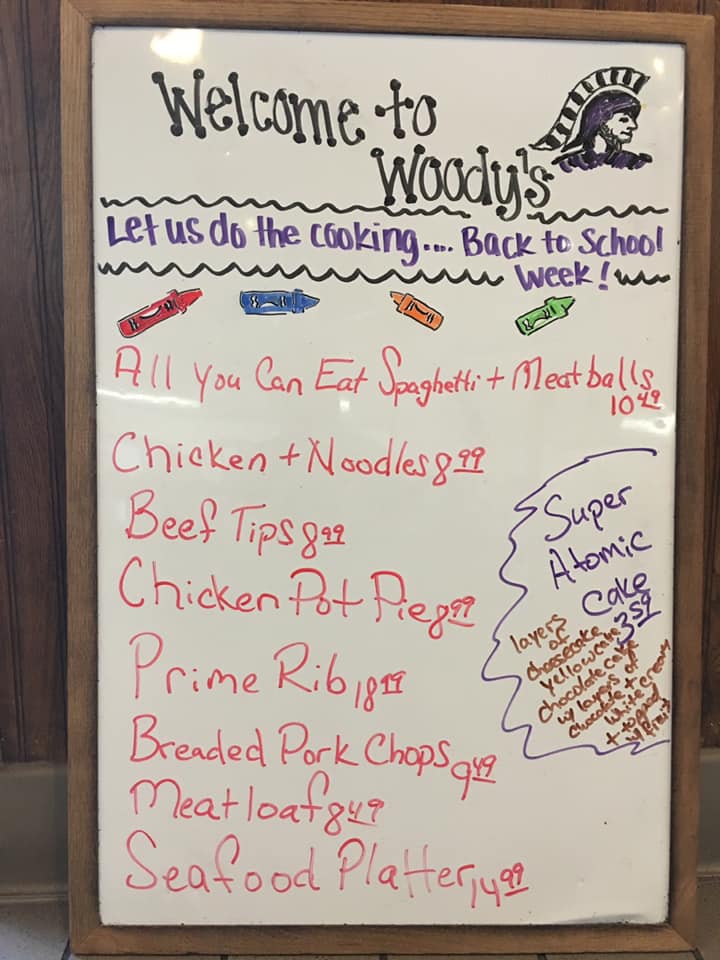 Welcome to
Woody's
Let us do the cooking.... Back to School
Week!
All You Can Eat Spaghetti + Meatballs
10 49
Chicken + Noodles 8 99
Beef Tips 8 99
Chicken Pot Pie 8 99
Prime Rib 18 99
Breaded Pork Chops 9 49
Meatloaf 8 49
Seafood Platter 14 99
Super
Atomic
Cake
3 59
layers
of
cheesecake
yellow cake
chocolate cake
w/ layers of
chocolate +
white cream
+ topped
w/ fruit